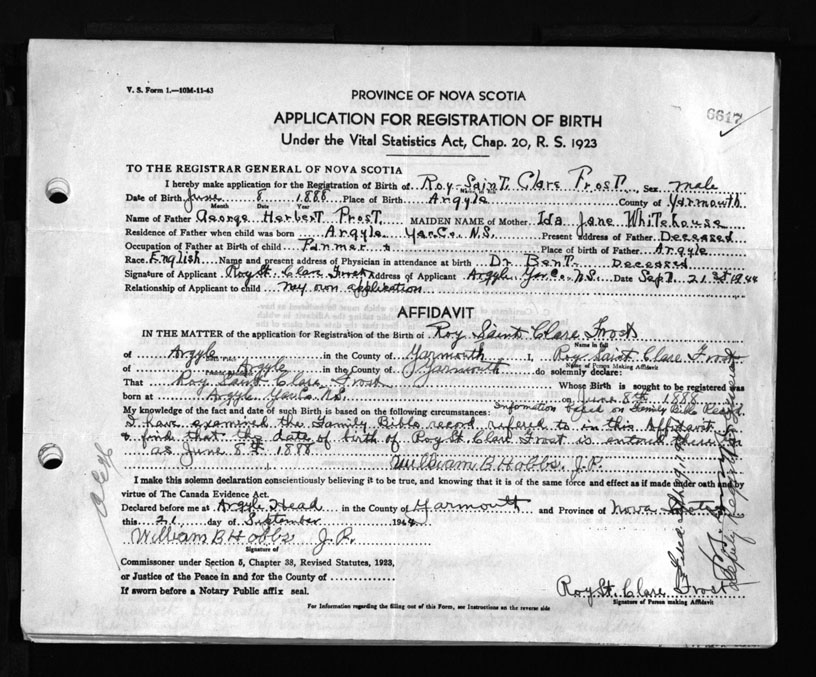 V. S. Form 1.—10M-11-43
PROVINCE OF NOVA SCOTIA
6617
APPLICATION FOR REGISTRATION OF BIRTH
Under the Vital Statistics Act, Chap. 20, R. S. 1923
TO THE REGISTRAR GENERAL OF NOVA SCOTIA
I hereby make application for the Registration of Birth of Roy Saint Clare Frost Sex male
Date of Birth June 8 1888 Place of Birth Argyle County of Yarmouth
Month Date Year
Name of Father George Herbert Frost MAIDEN NAME of Mother Ida Jane Whitehouse
Residence of Father when child was born Argyle Yar. Co. N.S. Present address of Father Deceased
Occupation of Father at Birth of child Farmer Place of birth of Father Argyle
Race English Name and present address of Physician in attendance at birth Dr. Bent Deceased
Signature of Applicant Roy St. Clare Frost Address of Applicant Argyle Yar. Co. N.S. Date Sept. 21st 1944
Relationship of Applicant to child my own application
AFFIDAVIT
IN THE MATTER of the application for Registration of the Birth of Roy Saint Clare Frost
Name in full
of Argyle in the County of Yarmouth I, Roy Saint Clare Frost
Name of Person Making Affidavit
of Argyle in the County of Yarmouth do solemnly declare:
That Roy Saint Clare Frost Whose Birth is sought to be registered was
born at Argyle Yar. Co. N.S. on June 8th 1888
My knowledge of the fact and date of such Birth is based on the following circumstances: Information based on Family Bible Record
I have examined the Family Bible record refered to in this Affidavit
& find that the date of birth of Roy St Clare Frost is entered therein
as June 8th 1888
William B Hobbs J.P.
I make this solemn declaration conscientiously believing it to be true, and knowing that it is of the same force and effect as if made under oath and by
virtue of The Canada Evidence Act.
Declared before me at Argyle Head in the County of Yarmouth and Province of Nova Scotia
this 21 day of September 1944
William B Hobbs J.P.
Signature of
Commissioner under Section 5, Chapter 38, Revised Statutes, 1923,
or Justice of the Peace in and for the County of
If sworn before a Notary Public affix seal.
Roy St. Clare Frost
Signature of Person making Affidavit
For Information regarding the filling out of this Form, see Instructions on the reverse side
Deputy Registrar